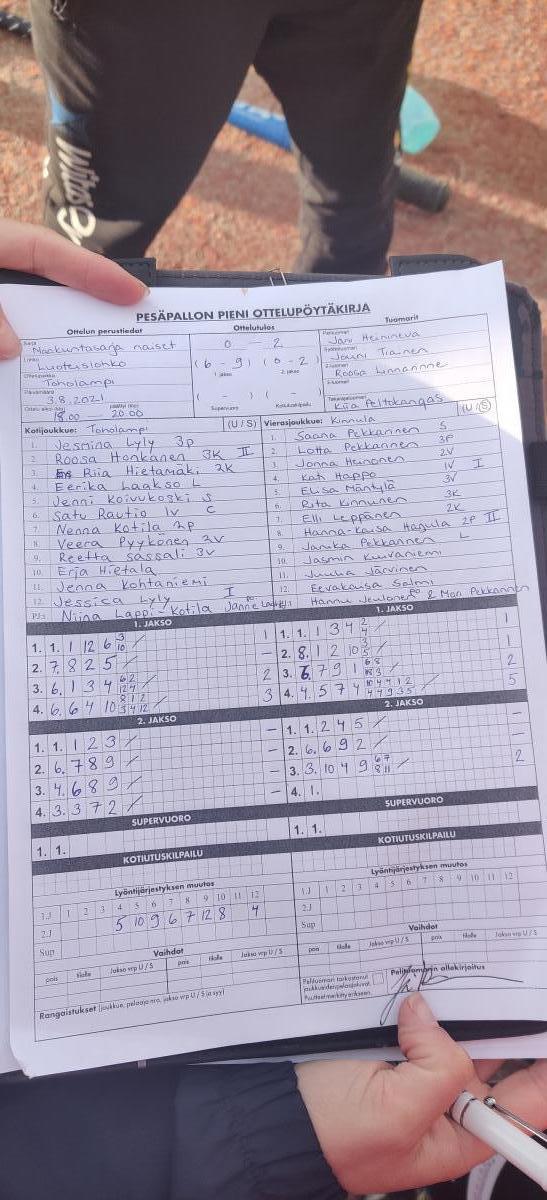 PESÄPALLON PIENI OTTELUPÖYTÄKIRJA
Ottelun perustiedot
Ottelutulos
Tuomarit
Sarja
Naakuntasarja naiset
Lohko
Luoteislohko
Ottelupaikka
Toholampi
Päivämäärä
3.8.2021
Ottelu alkoi (klo)
18.00
päättyi (klo)
20.00
0 - 2
( 6 - 9 ) ( 0 - 2 )
1. jakso 2. jakso
( - ) ( - )
Supervuoro Kotiutuskilpailu
Pelituomari
Jari Heinineva
Syöttötuomari
Jouni Trainen
2-tuomari
Roosa Linnannne
3-tuomari
Takarajatuomari
Kiia Peltokangas
Kotijoukkue: Toholampi (U / S)
1. Jesmina Lyly 3p
2. Roosa Honkanen 3K II
3. Riia Hietamäki 2K
4. Eerika Laakso L
5. Jenni Koivukoski S
6. Satu Rautio 1v C
7. Nenna Kotila 2p
8. Veera Pyykönen 2v
9. Reetta Sassali 3v
10. Erja Hietala
11. Jenna Kohtaniemi
12. Jessica Lyly I
PJ: Niina Lappi-Kotila Janne
Vierasjoukkue: Kinnula (U / S)
1. Saana Pekkarinen S
2. Lotta Pekkarinen 3P
3. Jonna Heinonen 2V
4. Kati Happo 1V I
5. Elisa Mäntylä 3V
6. Rita Kinnunen 3K
7. Elli Leppänen 2K
8. Hanna-Kaisa Hagula 2P II
9. Janika Pekkarinen L
10. Jasmin Kuivaniemi
11. Juulia Järvinen
12. Eevakaisa Salmi
Hannu Jeulonen & Mari Pekkarinen
1. JAKSO
1. 1. 1 12 6 3 10 / 1
2. 7. 8 2 5 / -
3. 6. 1 3 4 6 2 12 4 / 2
4. 6. 6 4 10 8 1 2 3 4 12 / 3
1. JAKSO
1. 1. 1 3 4 2 4 / 1
2. 8. 1 2 10 3 5 / 1
3. 6. 7 9 1 6 8 8 3 / 2
4. 4. 5 7 4 10 4 4 12 4 4 9 3 5 / 5
2. JAKSO
1. 1. 1 2 3 / -
2. 6. 7 8 9 / -
3. 4. 6 8 9 / -
4. 3. 3 7 2 / -
2. JAKSO
1. 1. 2 4 5 / -
2. 6. 6 9 2 / -
3. 3. 10 4 9 6 7 8 11 / 2
4. 1.
SUPERVUORO
1. 1.
SUPERVUORO
1. 1.
KOTIUTUSKILPAILU
KOTIUTUSKILPAILU
Lyöntijärjestyksen muutos
1.J 1 2 3 4 5 6 7 8 9 10 11 12
2.J 5 10 9 6 7 12 8 4
Sup
Lyöntijärjestyksen muutos
1.J 1 2 3 4 5 6 7 8 9 10 11 12
2.J
Sup
Vaihdot
pois tilalle Jakso vrp U / S pois tilalle Jakso vrp U / S
Vaihdot
pois tilalle Jakso vrp U / S pois tilalle Jakso vrp U / S
Rangaistukset (joukkue, pelaaja nro, jakso vrp U / S ja syy)
Pelituomari tarkastanut
joukkueiden pelaajaluvat.
Puutteet merkitty erikseen.
Pelituomarin allekirjoitus